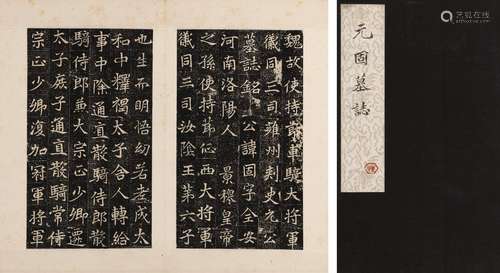 魏故使持節車騎大將軍
儀同三司雍州刺史元公
墓誌銘 公諱固字全安
河南洛陽人 景穆皇帝
之孫使持節征西大將軍
儀同三司汝陰王第六子
也生而明悟幼若老成太
和中釋褐太子舍人轉給
事中除通直散騎侍郎散
騎侍郎兼大宗正少卿遷
太子庶子通直散騎常侍
宗正少卿復加冠軍將軍
元固墓誌
艺狐在线